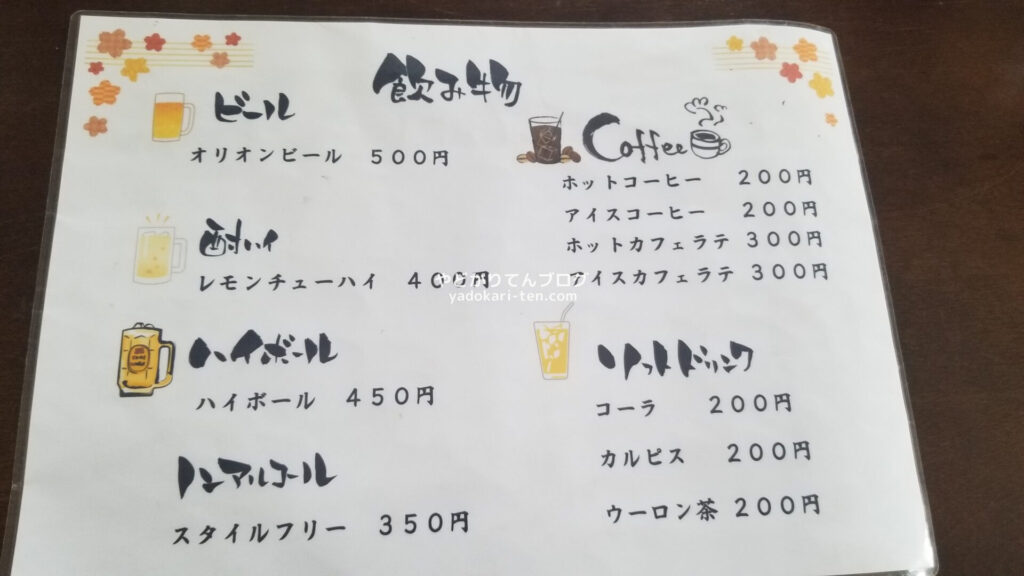 飲み物
ビール
オリオンビール 500円
酎ハイ
レモンチューハイ 400円
ハイボール
ハイボール 450円
ノンアルコール
スタイルフリー 350円
Coffee
ホットコーヒー 200円
アイスコーヒー 200円
ホットカフェラテ 300円
アイスカフェラテ 300円
ソフトドリンク
コーラ 200円
カルピス 200円
ウーロン茶 200円
やどかりてんブログ
yadokari-ten.com